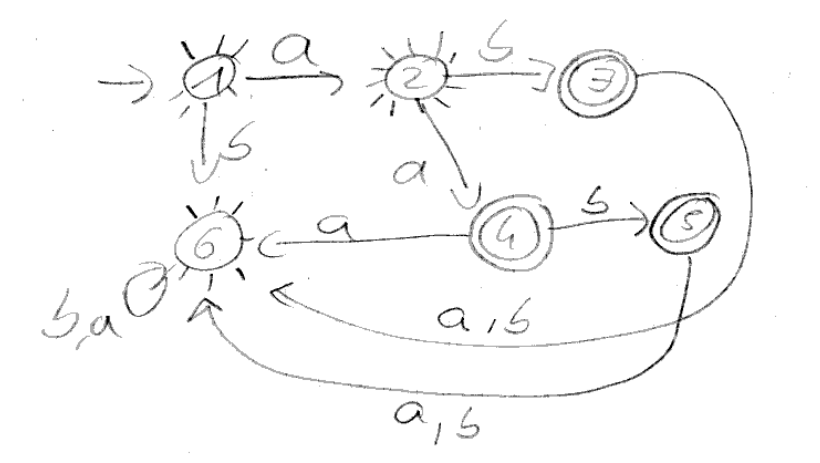 1 a 2 b 3
b a
6 a 4 b 5
b,a a,b
a,b